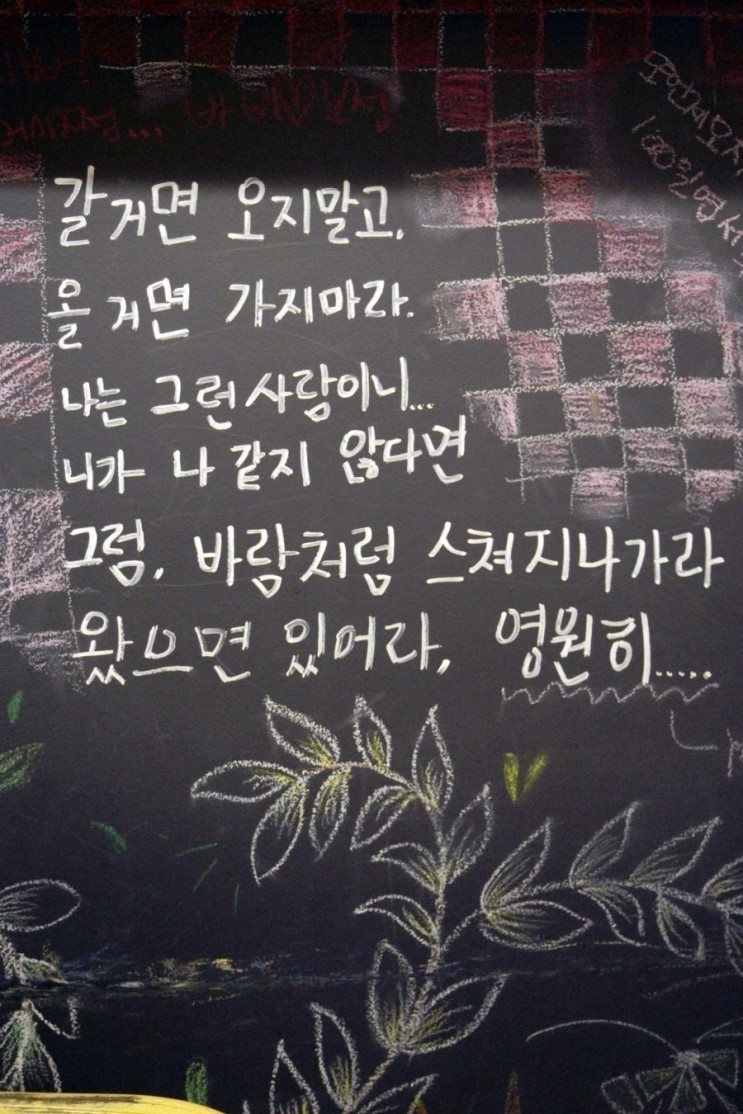 갈거면 오지말고,
올거면 가지마라.
나는 그런 사람이니...
니가 나 같지 않다면
그럼, 바람처럼 스쳐지나가라
왔으면 있어라, 영원히.....